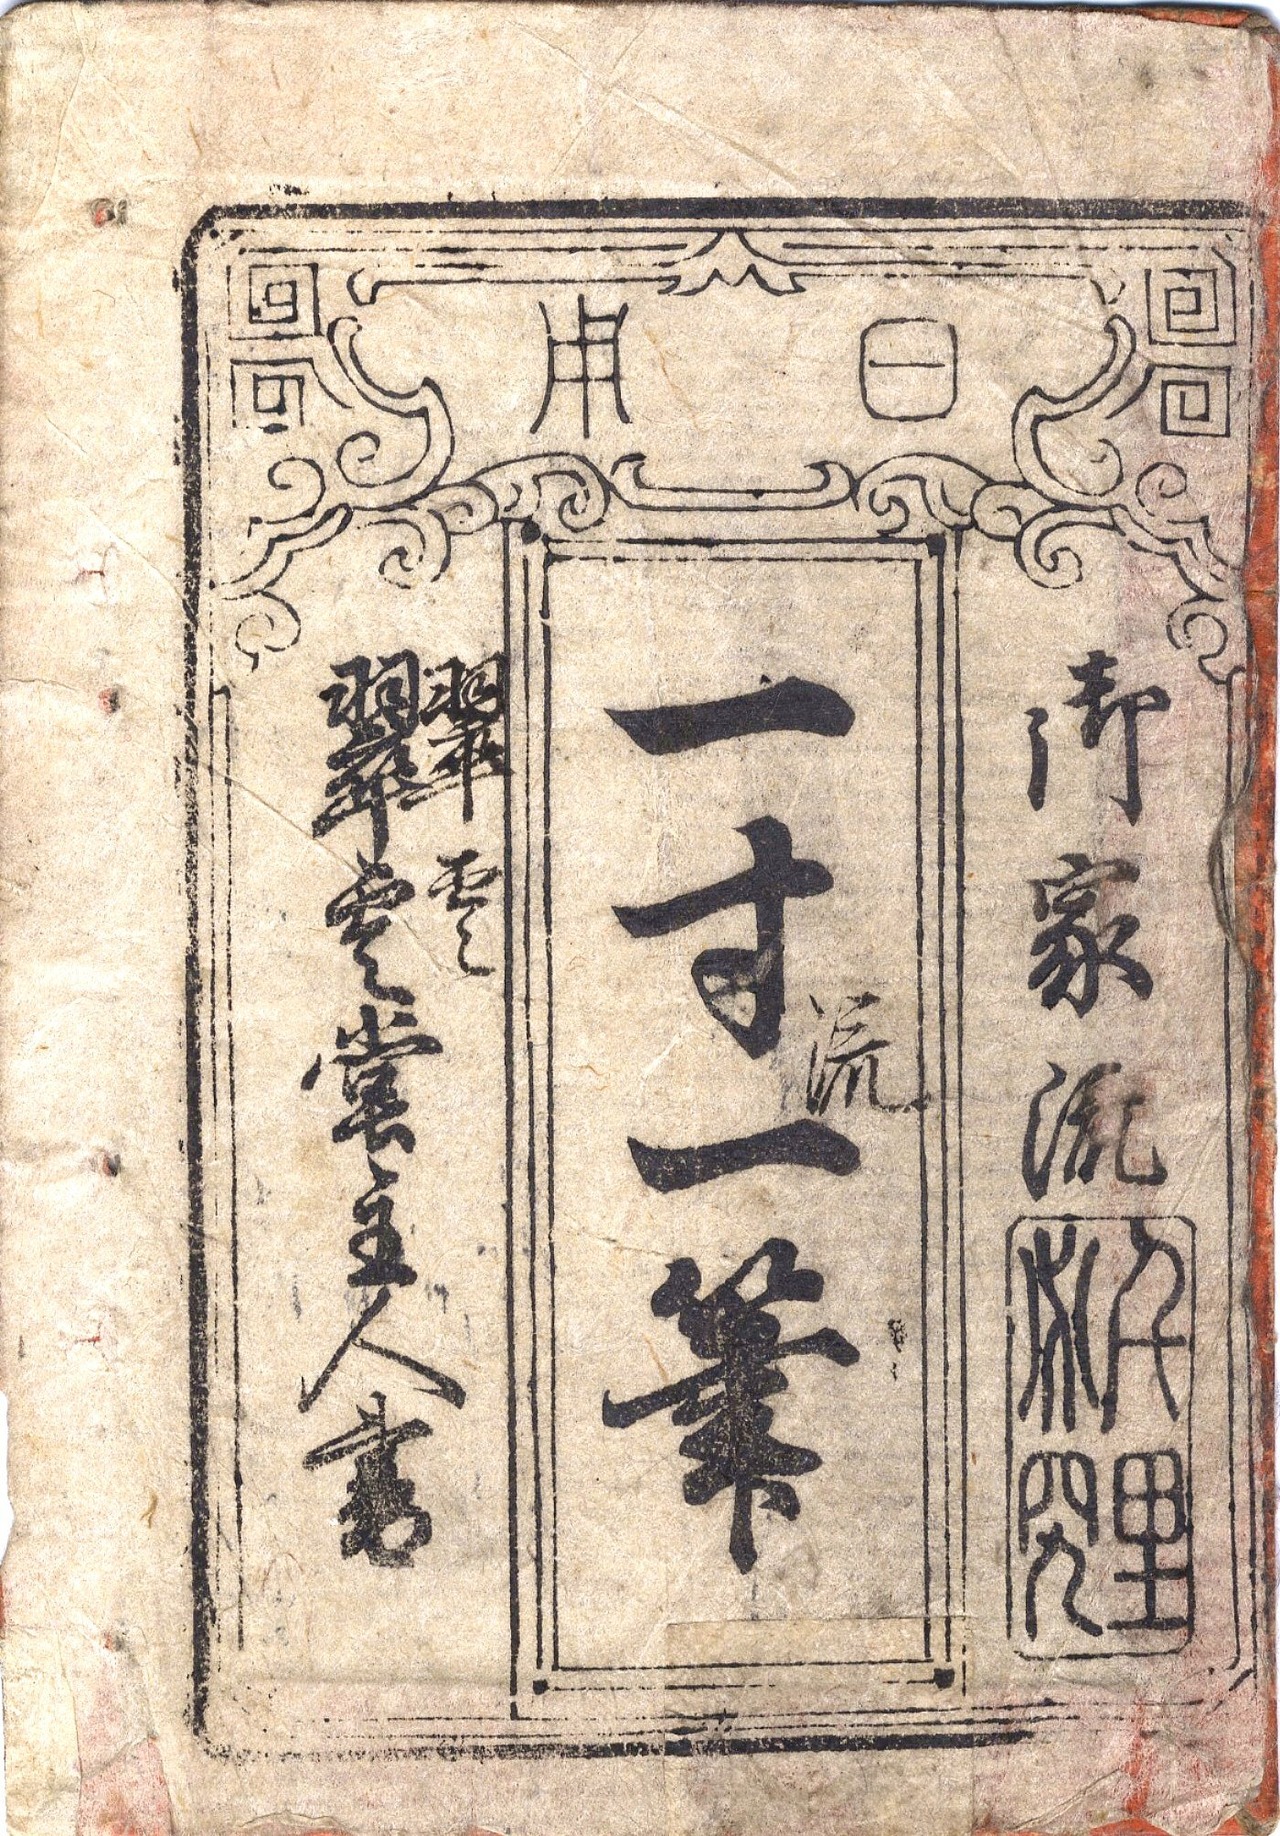 日用
御家流
一寸一筆
流
翠雲
翠雲堂主人書